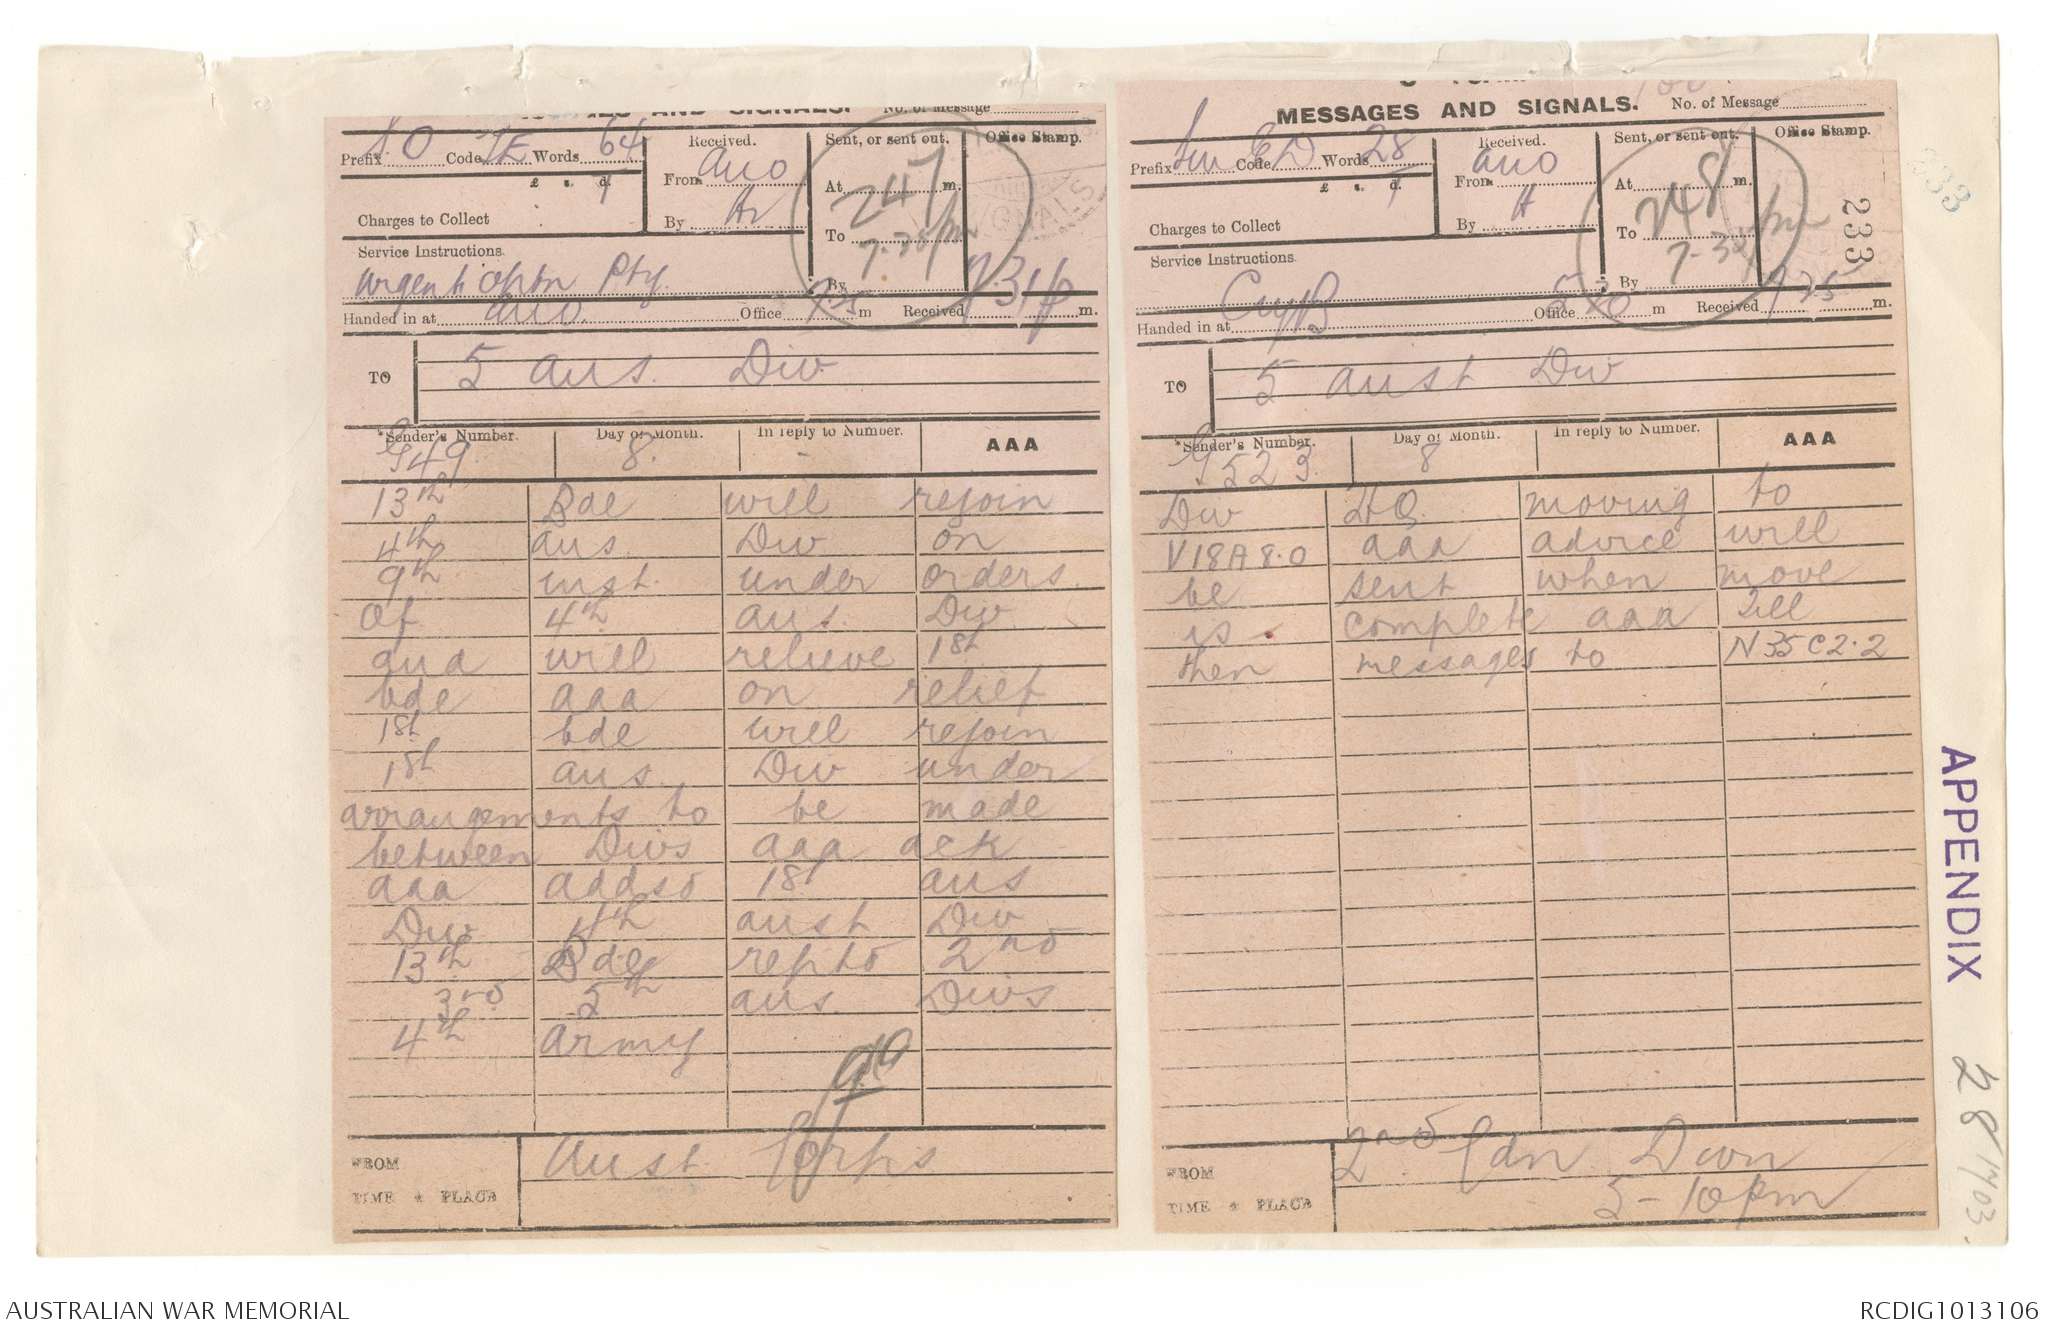 MESSAGES AND SIGNALS. No. of Message
Prefix SO Code JE Words 64
Received.
Sent, or sent out.
Office Stamp.
£ s. d.
From AUO
At 247 m.
Charges to Collect
By
To 7-35pm
Service Instructions.
Urgent Opn Pty.
By
Handed in at AUO. Office 7.25 m Received 7.31p m.
TO 5 Aus. Div
*Sender's Number. Day of Month. In reply to Number. AAA
G49 8.
13th Bde will rejoin
4th Aus. Div on
9th inst. under orders
of 4th Aus. Div
and will relieve 1st
bde aaa on relief
1st bde will rejoin
1st Aus. Div under
arrangements to be made
between Divs aaa ack
aaa addsd 1st Aus
Div 4th Aust Div
13th Bde reptd 2nd
3rd 5th Aus. Divs
4th Army
FROM Aust Corps
TIME & PLACE
MESSAGES AND SIGNALS. No. of Message
Prefix Sm Code Words 28
Received.
Sent, or sent out.
Office Stamp.
£ s. d.
From AUO
At 248 m.
Charges to Collect
By A
To 7-35 pm
Service Instructions.
By
Handed in at Office 520 m Received 725 m.
TO 5 Aust Div
*Sender's Number. Day of Month. In reply to Number. AAA
G523. 8
Div HQ. moving to
V18A8.0 aaa advice will
be sent when move
is complete aaa Till
then messages to N35C2.2
FROM 2nd Cdn Divn
TIME & PLACE 5-10pm
233
233
APPENDIX 28
1703.
AUSTRALIAN WAR MEMORIAL
RCDIG1013106